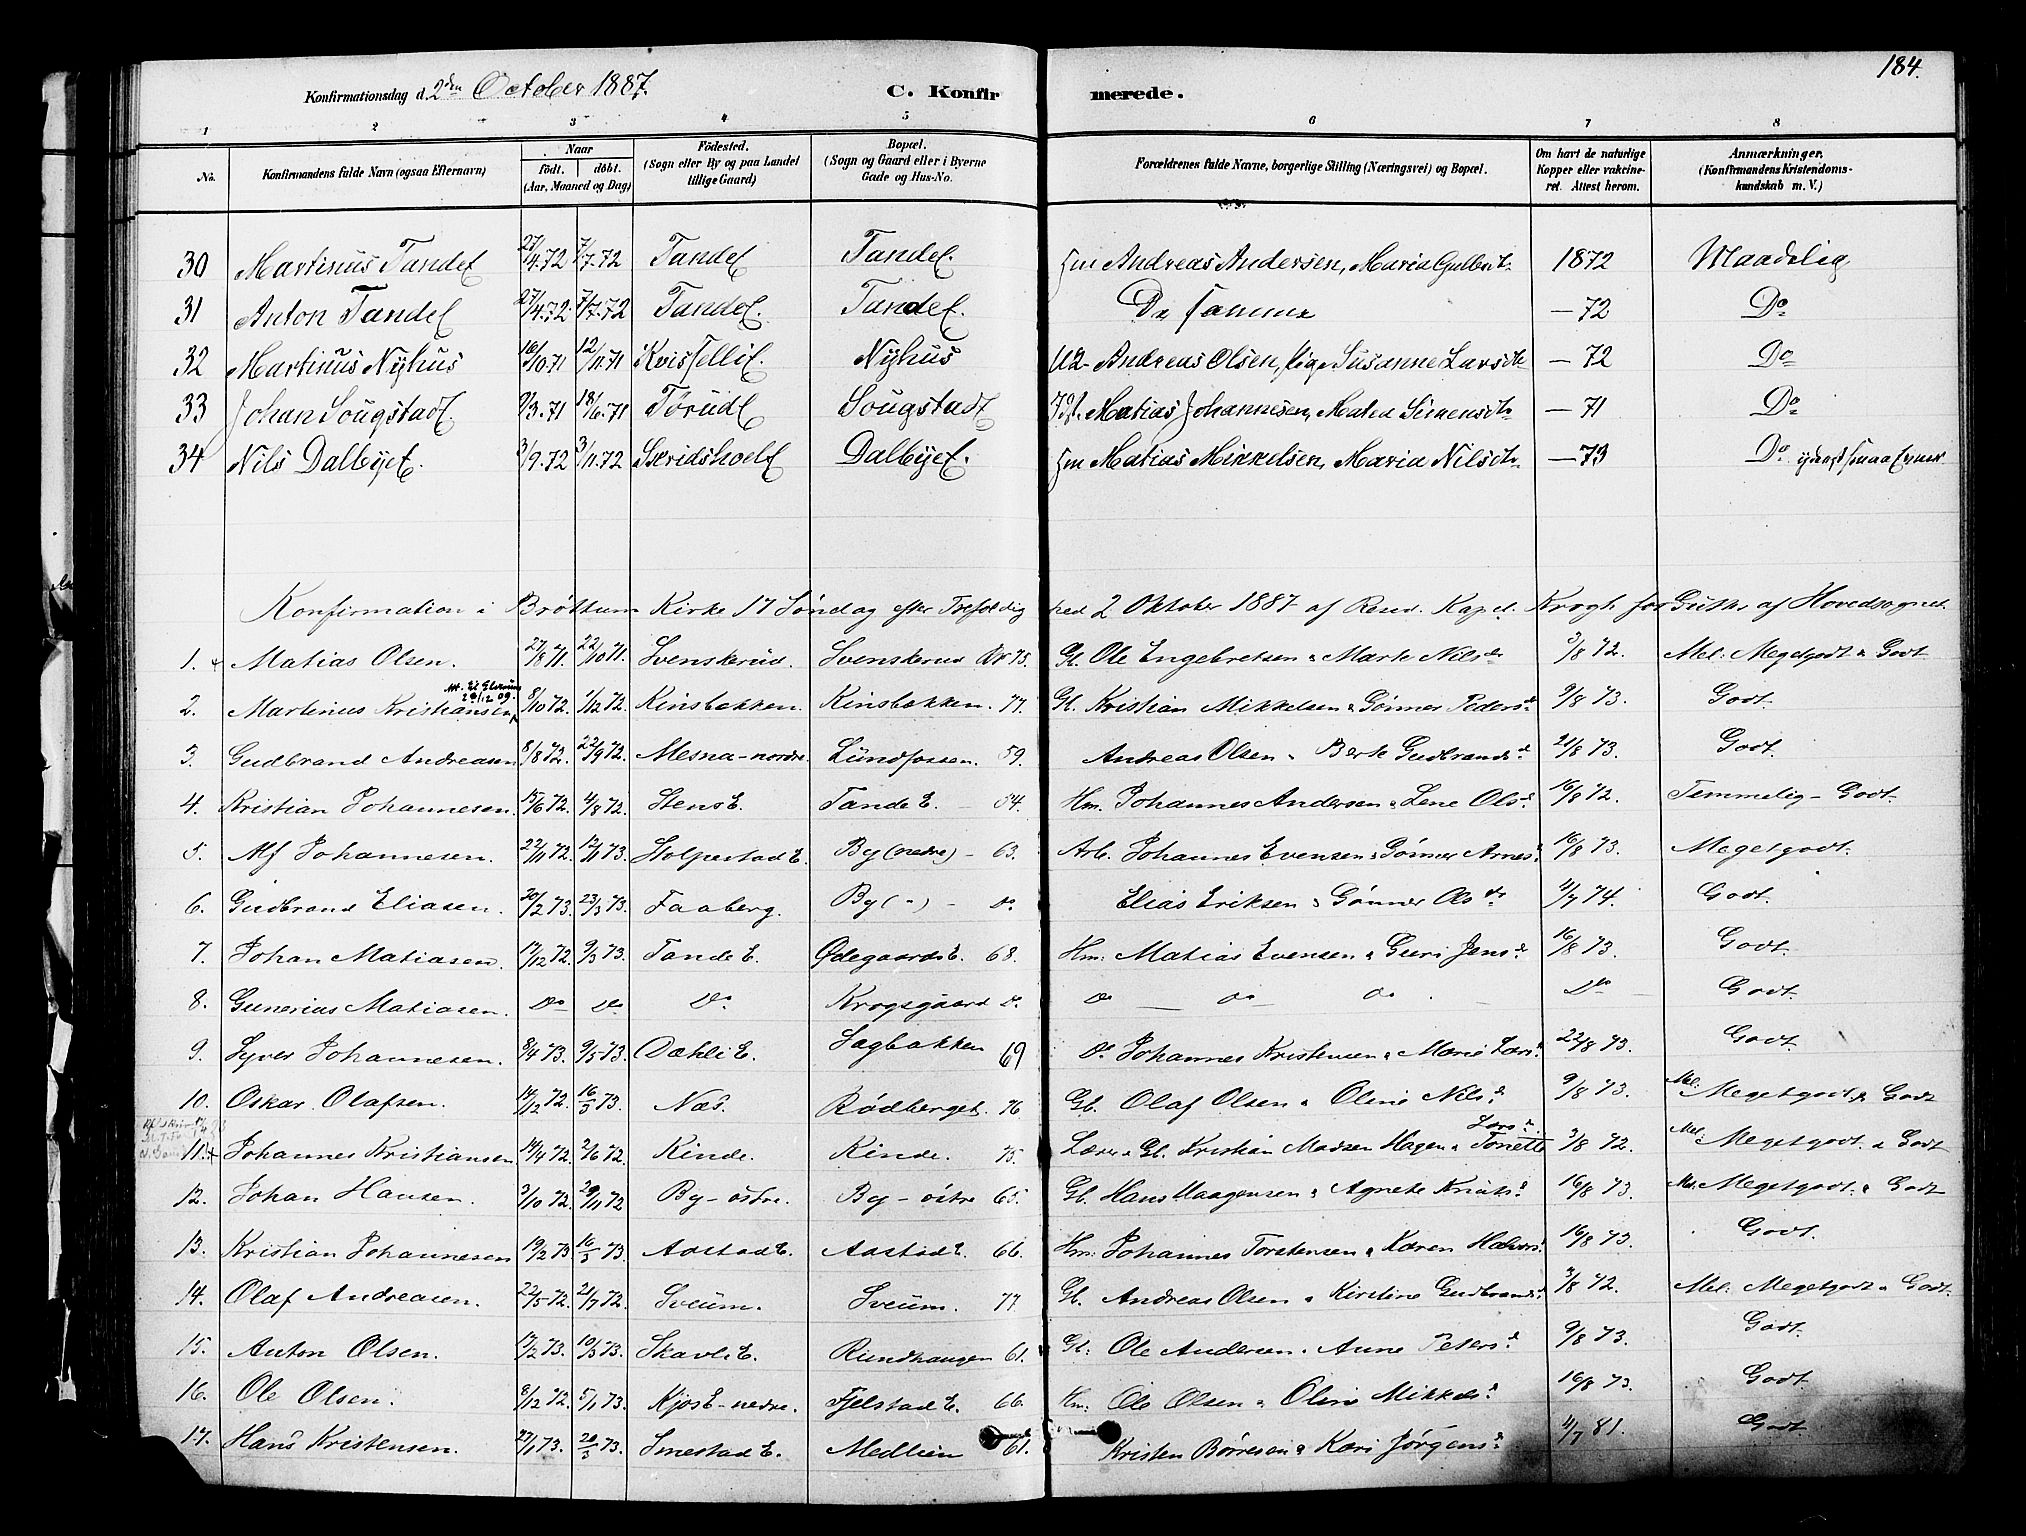 184.
Konfirmationsdag d. 2den October 1887. C. Konfir merede.
1 2 3 4 5 6 7 8
No. Konfirmandens fulde Navn (ogsaa Efternavn) Naar födt. döbt. (Aar, Maaned og Dag) Födested. (Sogn eller By og paa Landet tillige Gaard) Bopæl. (Sogn og Gaard eller i Byerne Gade og Hus-No. Forældrenes fulde Navne, borgerlige Stilling (Næringsvei) og Bopæl. Om havt de naturlige Kopper eller vakcineret. Attest herom. Anmærkninger. (Konfirmandens Kristendomskundskab m. V.)
30 Martinus Tandef 27/4.72 7/7.72 Tandef Tandef. Hm Andreas Andersen, Maria Gulbrdt. 1872 Maadelig
31 Anton Tandef 27/4.72 7/7.72 Tandef. Tandef. De samme — 72 Do
32 Martinus Nyhus 16/10.71 12/11.71 Nyhus Andreas Olsen, Pige Susanne Larsdtr — 72 Do
33 Johan Sougstadf. 9/3.71 18/6.71 Sougstadf Matias Johannesen, — 71 Do
34 Nils Dalbyef. 3/9.72 3/11.72 Dalbyef. Hm Matias Mikkelsen, Maria Nilsdtr — 73 Do
Konfirmation i Bröttum Kirke 17 Söndag efter Trefoldighed 2 Oktober 1887 af Resid. Kap. Krogh for Gutter af Hovedsognet.
1. + Matias Olsen. 27/8 71. 22/10 71. Svenskerud. Svenskerud 75. Gb. Ole Engebretsen & Marte Nilsdr 3/8 72. Mel: Megetgodt & Godt
Att. til Elverum 20/12 09.
2. Martinus Kristiansen 8/10 72. 1/12 72. Kinsbakken. Kinsbakken. 77. Gb. Kristian Mikkelsen & Gönner Pedersd 9/8 73. Godt.
3. Gudbrand Andreasen 8/8 72. 22/9 72. Mesna-nordre. Lundfossen. 59. Andreas Olsen & Berte Gudbrandsd 21/8 73. Godt.
4. Kristian Johannesen. 15/6 72. 4/8 72. Stens E. Tande E. — 54. Hm. Johannes Andersen & Lene Olsd 16/8 72. Temmelig-Godt.
5. Alf Johannesen. 22/11 72. 12/1 73. Stolpestad E. By (nedre) — 63. Arb. Johannes Evensen & Gönner Arnesd 16/8 73. Megetgodt.
6. Gudbrand Eliasen. 20/2 73. 23/3 73. Faaberg. By ( " ) — do Elias Eriksen & Gönner Olsdr 4/7 74. Godt.
7. Johan Matiasen. 17/12 72. 9/3 73. Tande E. Ødegaards E. 68. Hm: Matias Evensen & Guri Jensd 16/8 73. Godt.
8. Gunerius Matiasen. do do Do Krogsgaard do. do — do — do Do Godt.
9. Syver Johannesen. 8/4 73. 9/5 73. Dæhli E. Sagbakken 69 do Johannes Kristensen & Marie Larsd 22/8 73. Godt.
10. Oskar Olafsen. 14/12 72. 16/3 73. Næs. Rödberget. 76 Gb. Olaf Olsen & Oline Nilsd 9/8 73. Mel: Megetgodt & Godt
11. + Johannes Kristiansen 14/4 72. 2/6 72. Kinde. Kinde. 75. Lærer & Gb. Kristian Madsen Hagen & Tonette Larsd 3/8 72. Mel: Megetgodt & Godt
12. Johan Hansen. 3/10 72. 24/11 72 By-östre. By-östre 65. Gb. Hans Haagensen & Agnete 16/8 73. Mel: Megetgodt & Godt
13. Kristian Johannesen 19/2 73 16/3 73. Aastad E. Aastad E. 66. Hm: Johannes Torstensen & Karen Halvorsd 16/8 73. Godt.
14. Olaf Andreasen. 22/5 72. 21/7 72. Sveum. Sveum. 77 Gb. Andreas Olsen & Kirstine Gudbrandsd 3/8 72. Mel: Megetgodt & Godt.
15. Anton Olsen. 17/2 73. 10/3 73. Skavli E. Rundhaugen 61. Gb: Ole Andersen & Anne Petersd 9/8 73. Godt.
16. Ole Olsen. 8/12 72. 5/1 73. Kjos E-nedre. Fjelstad E. 66. Hm: Ole Olsen & Oline Mikkelsd 16/8 73. Godt.
17. Hans Kristensen. 27/1 73. 20/3 73. Smestad E. Medlien 61. Kristen Börresen & Kari Jörgensd 4/7 81. Godt